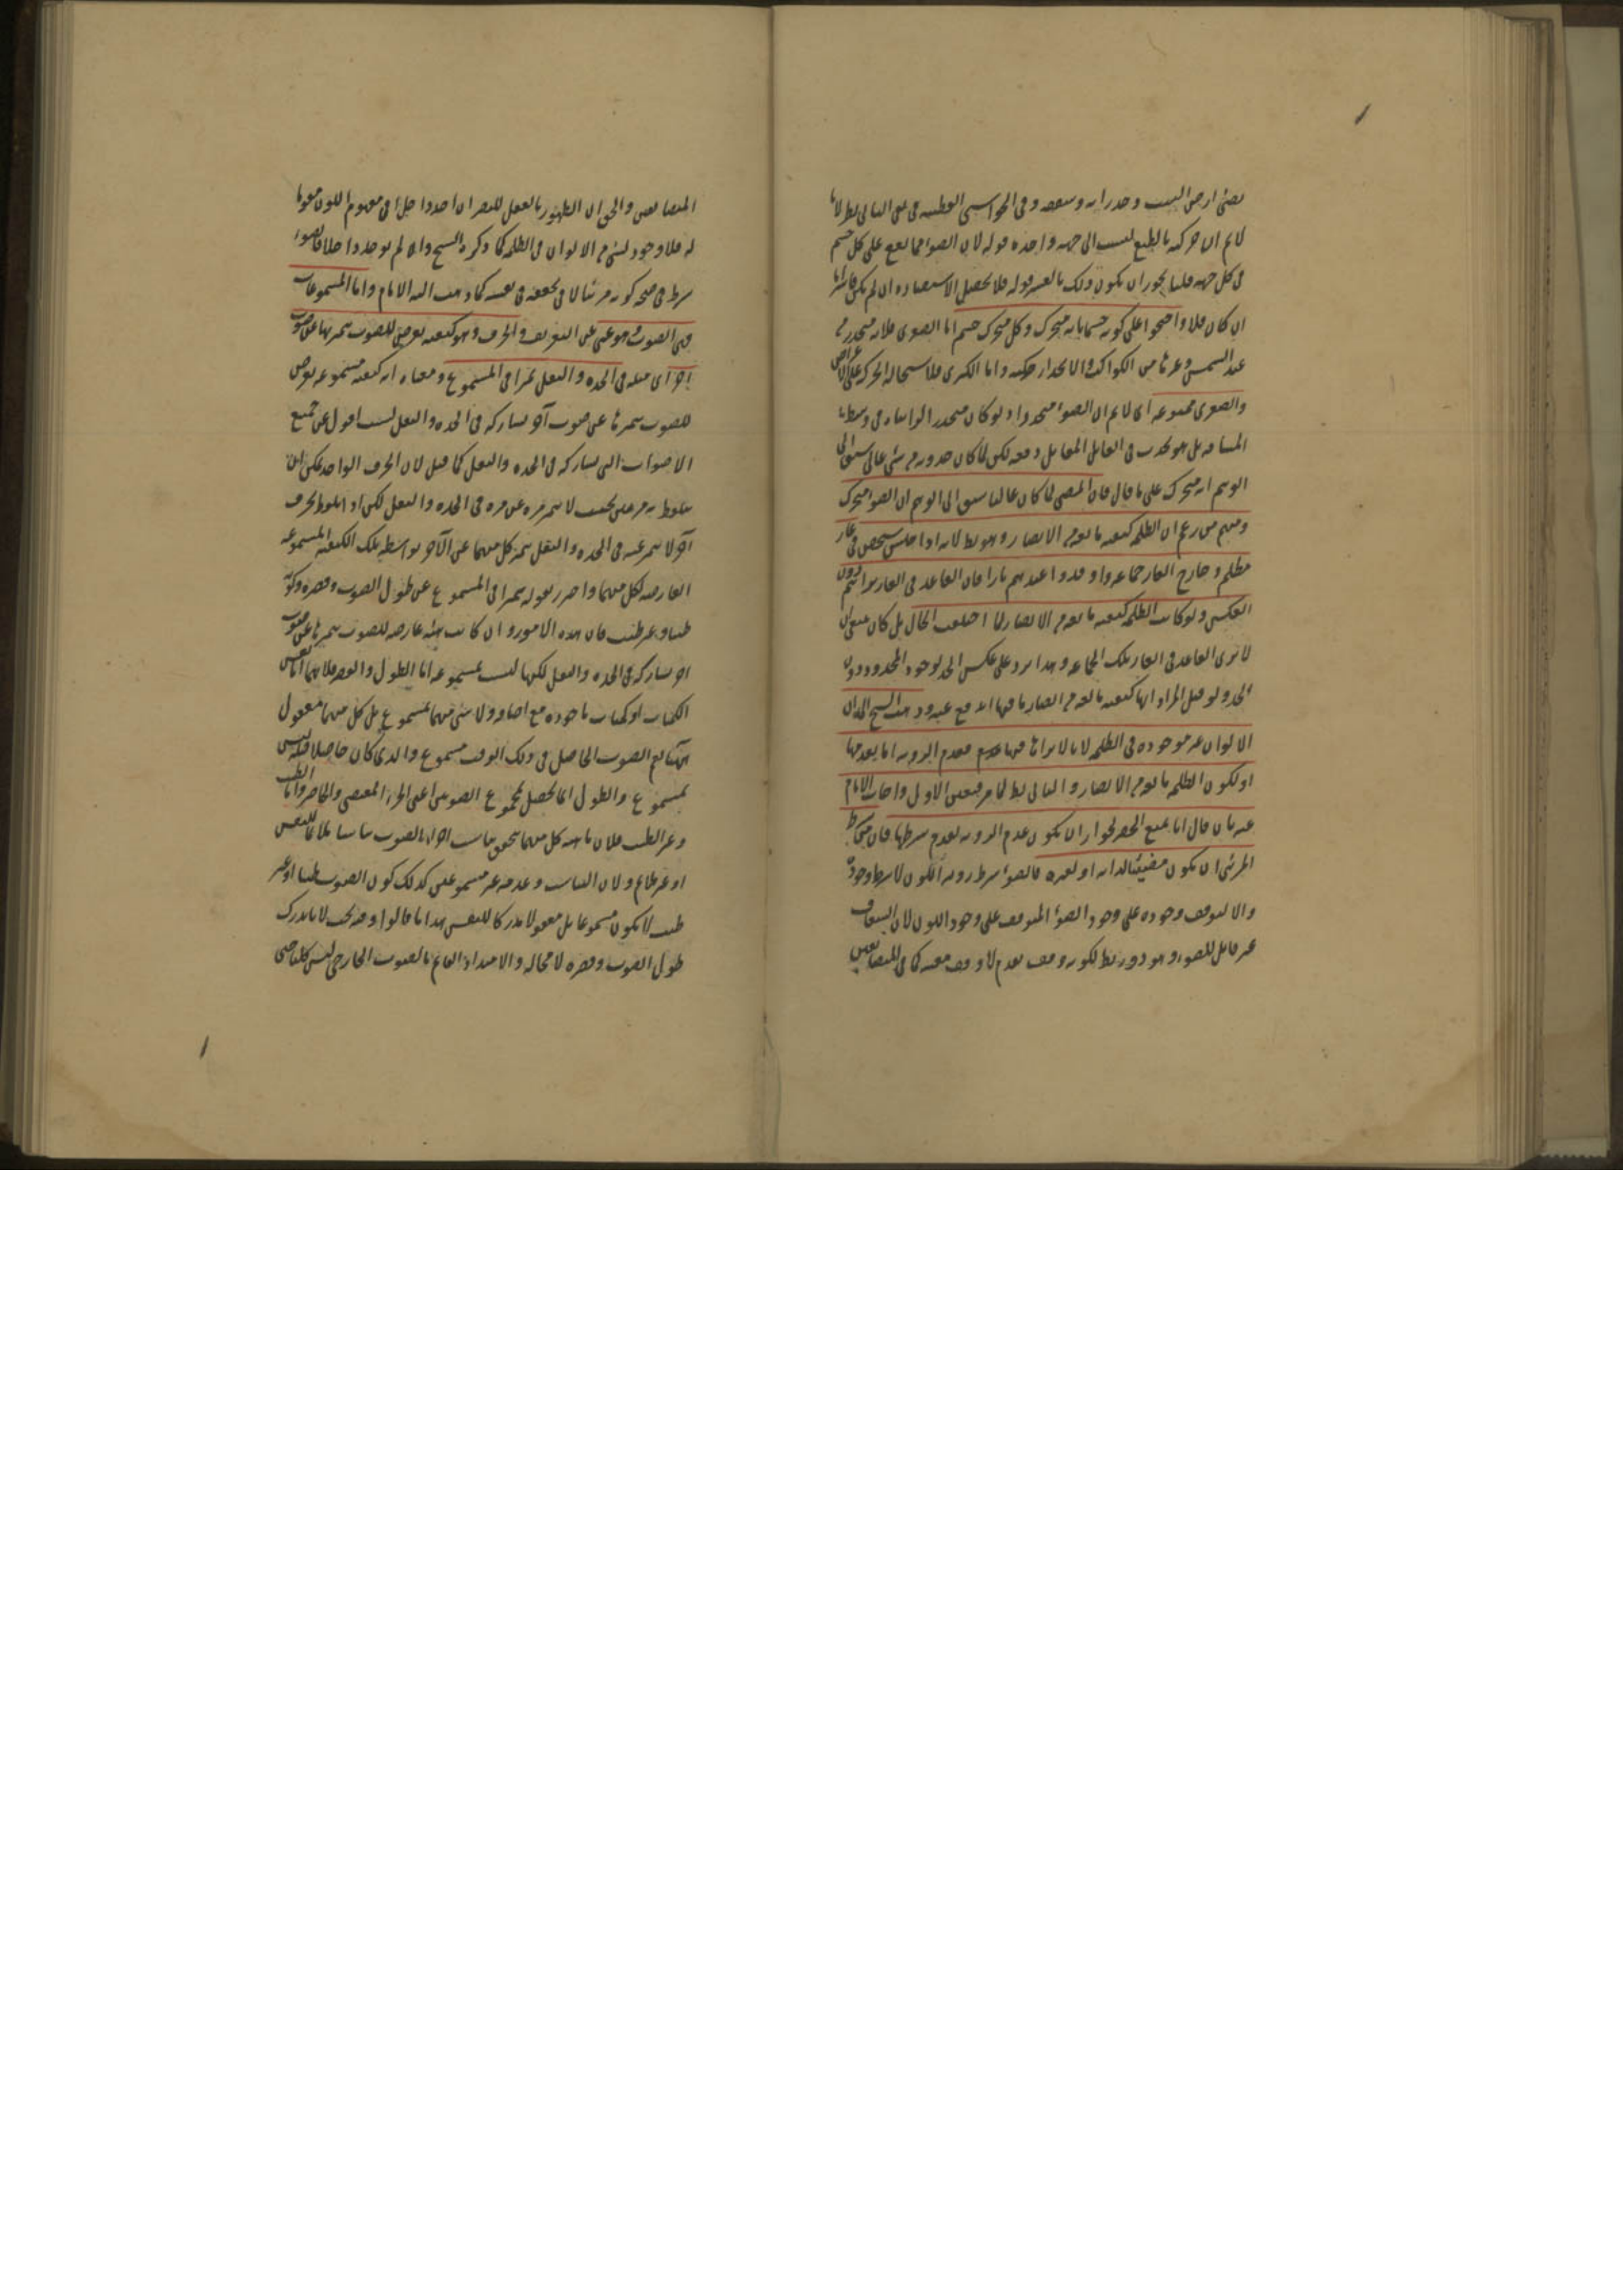 يضئ ارض البيت وجدرانه وسقفه وفى الحواشى القطبيه فى نفى التالى نظر لانا
لا نم ان حركته بالطبع ليست الى جهه واحده قوله لان الضوء مما يقع على كل جسم
فى كل جهه قلنا يجوز ان يكون ذلك بالقسر قوله فلا يحصل الاستضاده ان لم يكن
ان كان فلا واحتجوا على كونه جسما بانه متحرك وكل متحرك جسم اما الصغرى فلانه منحدر من
عند الشمس وغيرها من الكواكب والانحدار حركه واما الكبرى فلاستحاله الحركه على الاعراض
والصغرى ممنوعه اى لا نم ان الضوء منحدر اذ لو كان منحدرا لرايناه فى وسط
المسافه بل هو يحدث فى القابل المقابل دفعه لكن لما كان حدوثه من شئ عال سبق الى
الوهم انه متحرك على ما قال فان المضى لما كان عاليا سبق الى الوهم ان الضوء متحرك
ومنهم من زعم ان الظلمه كيفيه مانعه من الابصار وهو بط لانه اذا جلس شخص فى غار
مظلم وخارج الغار جماعه واوقدوا عندهم نارا فان القاعد فى الغار يراهم دون
العكس ولو كانت الظلمه كيفيه مانعه من الابصار لما اختلف الحال بل كان ينبغى ان
لا يرى القاعد فى الغار تلك الجماعه وهذا يرد على عكس الحد لوجود المحدود دون
الحد ولو قيل المراد انها كيفيه مانعه من ابصار ما فيها اندفع عنه وذهب الشيخ الى ان
الالوان غير موجوده فى الظلمه لانا لا نراها فيها فعدم الرويه اما لعدمها
او لكون الظلمه مانعه من الابصار والثانى بط لما مر فتعين الاول واجاب الامام
عنه بان قال انا نمنع الحصر لجواز ان يكون عدم الرويه لعدم شرطها فان من شرايط
المرئى ان يكون مضيئا لذاته او لغيره فالضوء شرط رويه اللون لا شرط وجوده
والا لتوقف وجوده على وجود الضوء المتوقف على وجود اللون لان الشفاف
غير قابل للضوء وهو دور بط لكونه وقف تقدم لا وقف معيه كما فى المتضايفين
المتضايفين والحق ان الظهور بالفعل للبصر ان اخذ داخلا فى مفهوم اللون مقوما
له فلا وجود لشئ من الالوان فى الظلمه كما ذكره الشيخ وان لم يوخذ داخلا فالضوء
شرط فى صحه كونه مرئيا لا فى تحققه فى نفسه كما ذهب اليه الامام واما المسموعات
فهى الصوت هو غنى عن التعريف والحرف وهو كيفيه تعرض للصوت يتميز بها عن صوت
اخر اى مثله فى الحده والثقل تميزا فى المسموع ومعناه انه كيفيه مسموعه تعرض
للصوت يتميز بها عن صوت آخر يشاركه فى الحده والثقل لست اقول عن جميع
الاصوات التى يشاركه فى الحده والثقل كما قيل لان الحرف الواحد يمكن ان
يتلفظ به مرتين بحيث لا يتميز مره عن مره فى الحده والثقل لكن اذا تلفظ بحرف
آخر لا يتميز عنه فى الحده والثقل يتميز كل منهما عن الآخر بواسطه تلك الكيفيه المسموعه
العارضه لكل منهما واحترز بقوله تميزا فى المسموع عن طول الصوت وقصره وكونه
طيبا وغير طيب فان هذه الامور وان كانت هيئه عارضه للصوت يتميز بها عن صوت
اخر يشاركه فى الحده والثقل لكنها ليست مسموعه اما الطول والقصر فلانهما اما نفس
الكميات او كميات ماخوذه مع اضافه ولا شئ منهما بمسموع بل كل منهما معقول
الصوت الحاصل فى ذلك الوقت مسموع والذى كان حاصلا قبله ليس
بمسموع والطول انما يحصل بمجموع الصوتين اعنى الجزء المنقضى والحاضر واما الطيب
وغير الطيب فلان ماهيه كل منهما يتحقق بتناسب اجزاء الصوت تناسبا ملائما للنفس
او غير ملائم ولان التناسب وعدمه غير مسموعين كذلك كون الصوت طيبا او غير
طيب لا يكون مسموعا بل معقولا مدركا للنفس هذا ما قالوا وفيه بحث لانا ندرك
طول الصوت وقصره لا محاله والامتداد القائم بالصوت الخارجى ليس